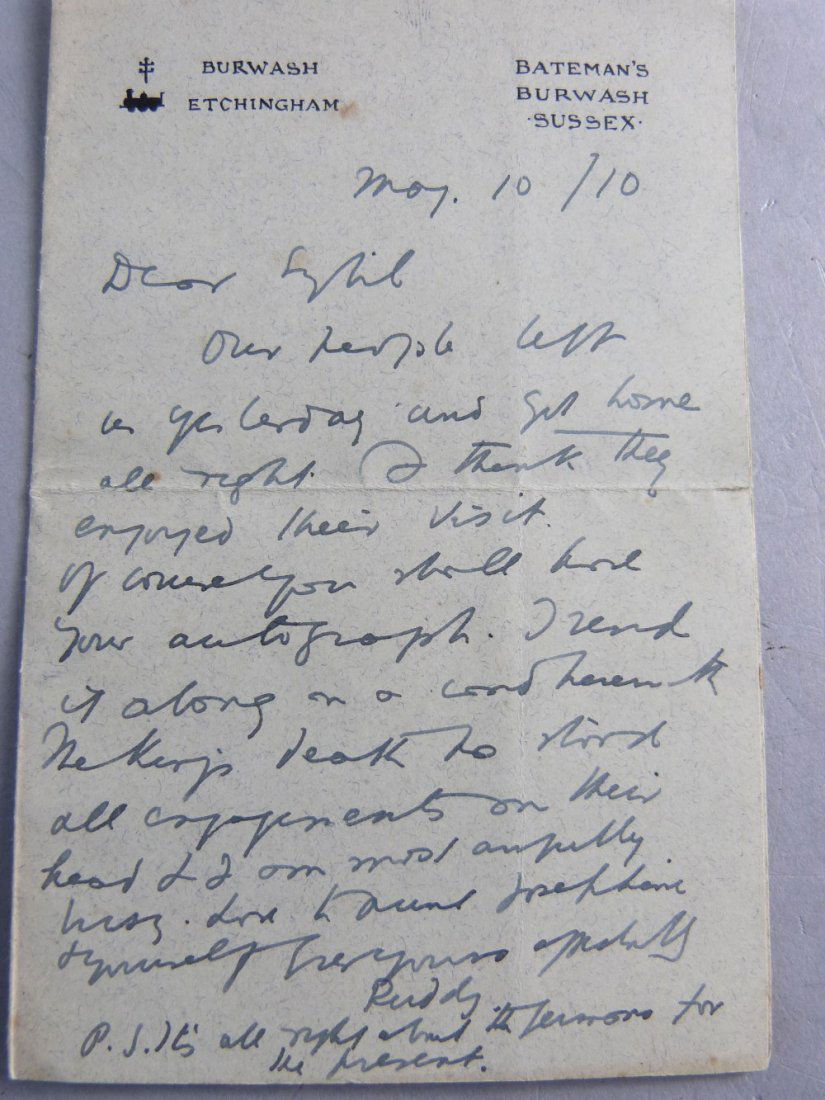 BURWASH
ETCHINGHAM
BATEMAN'S
BURWASH
·SUSSEX·
May. 10 /10
Dear Sybil
Our people left
us yesterday and got home
all right. I think they
enjoyed their visit.
Of course you shall have
your autograph. I send
it along on a card herewith
The King's death has stood
all engagements on their
head & I am most awfully
busy. Love to Aunt Josephine
& yourself Ever yours affectntly
Ruddy.
P.S. It's all right about the sermons for
the present.